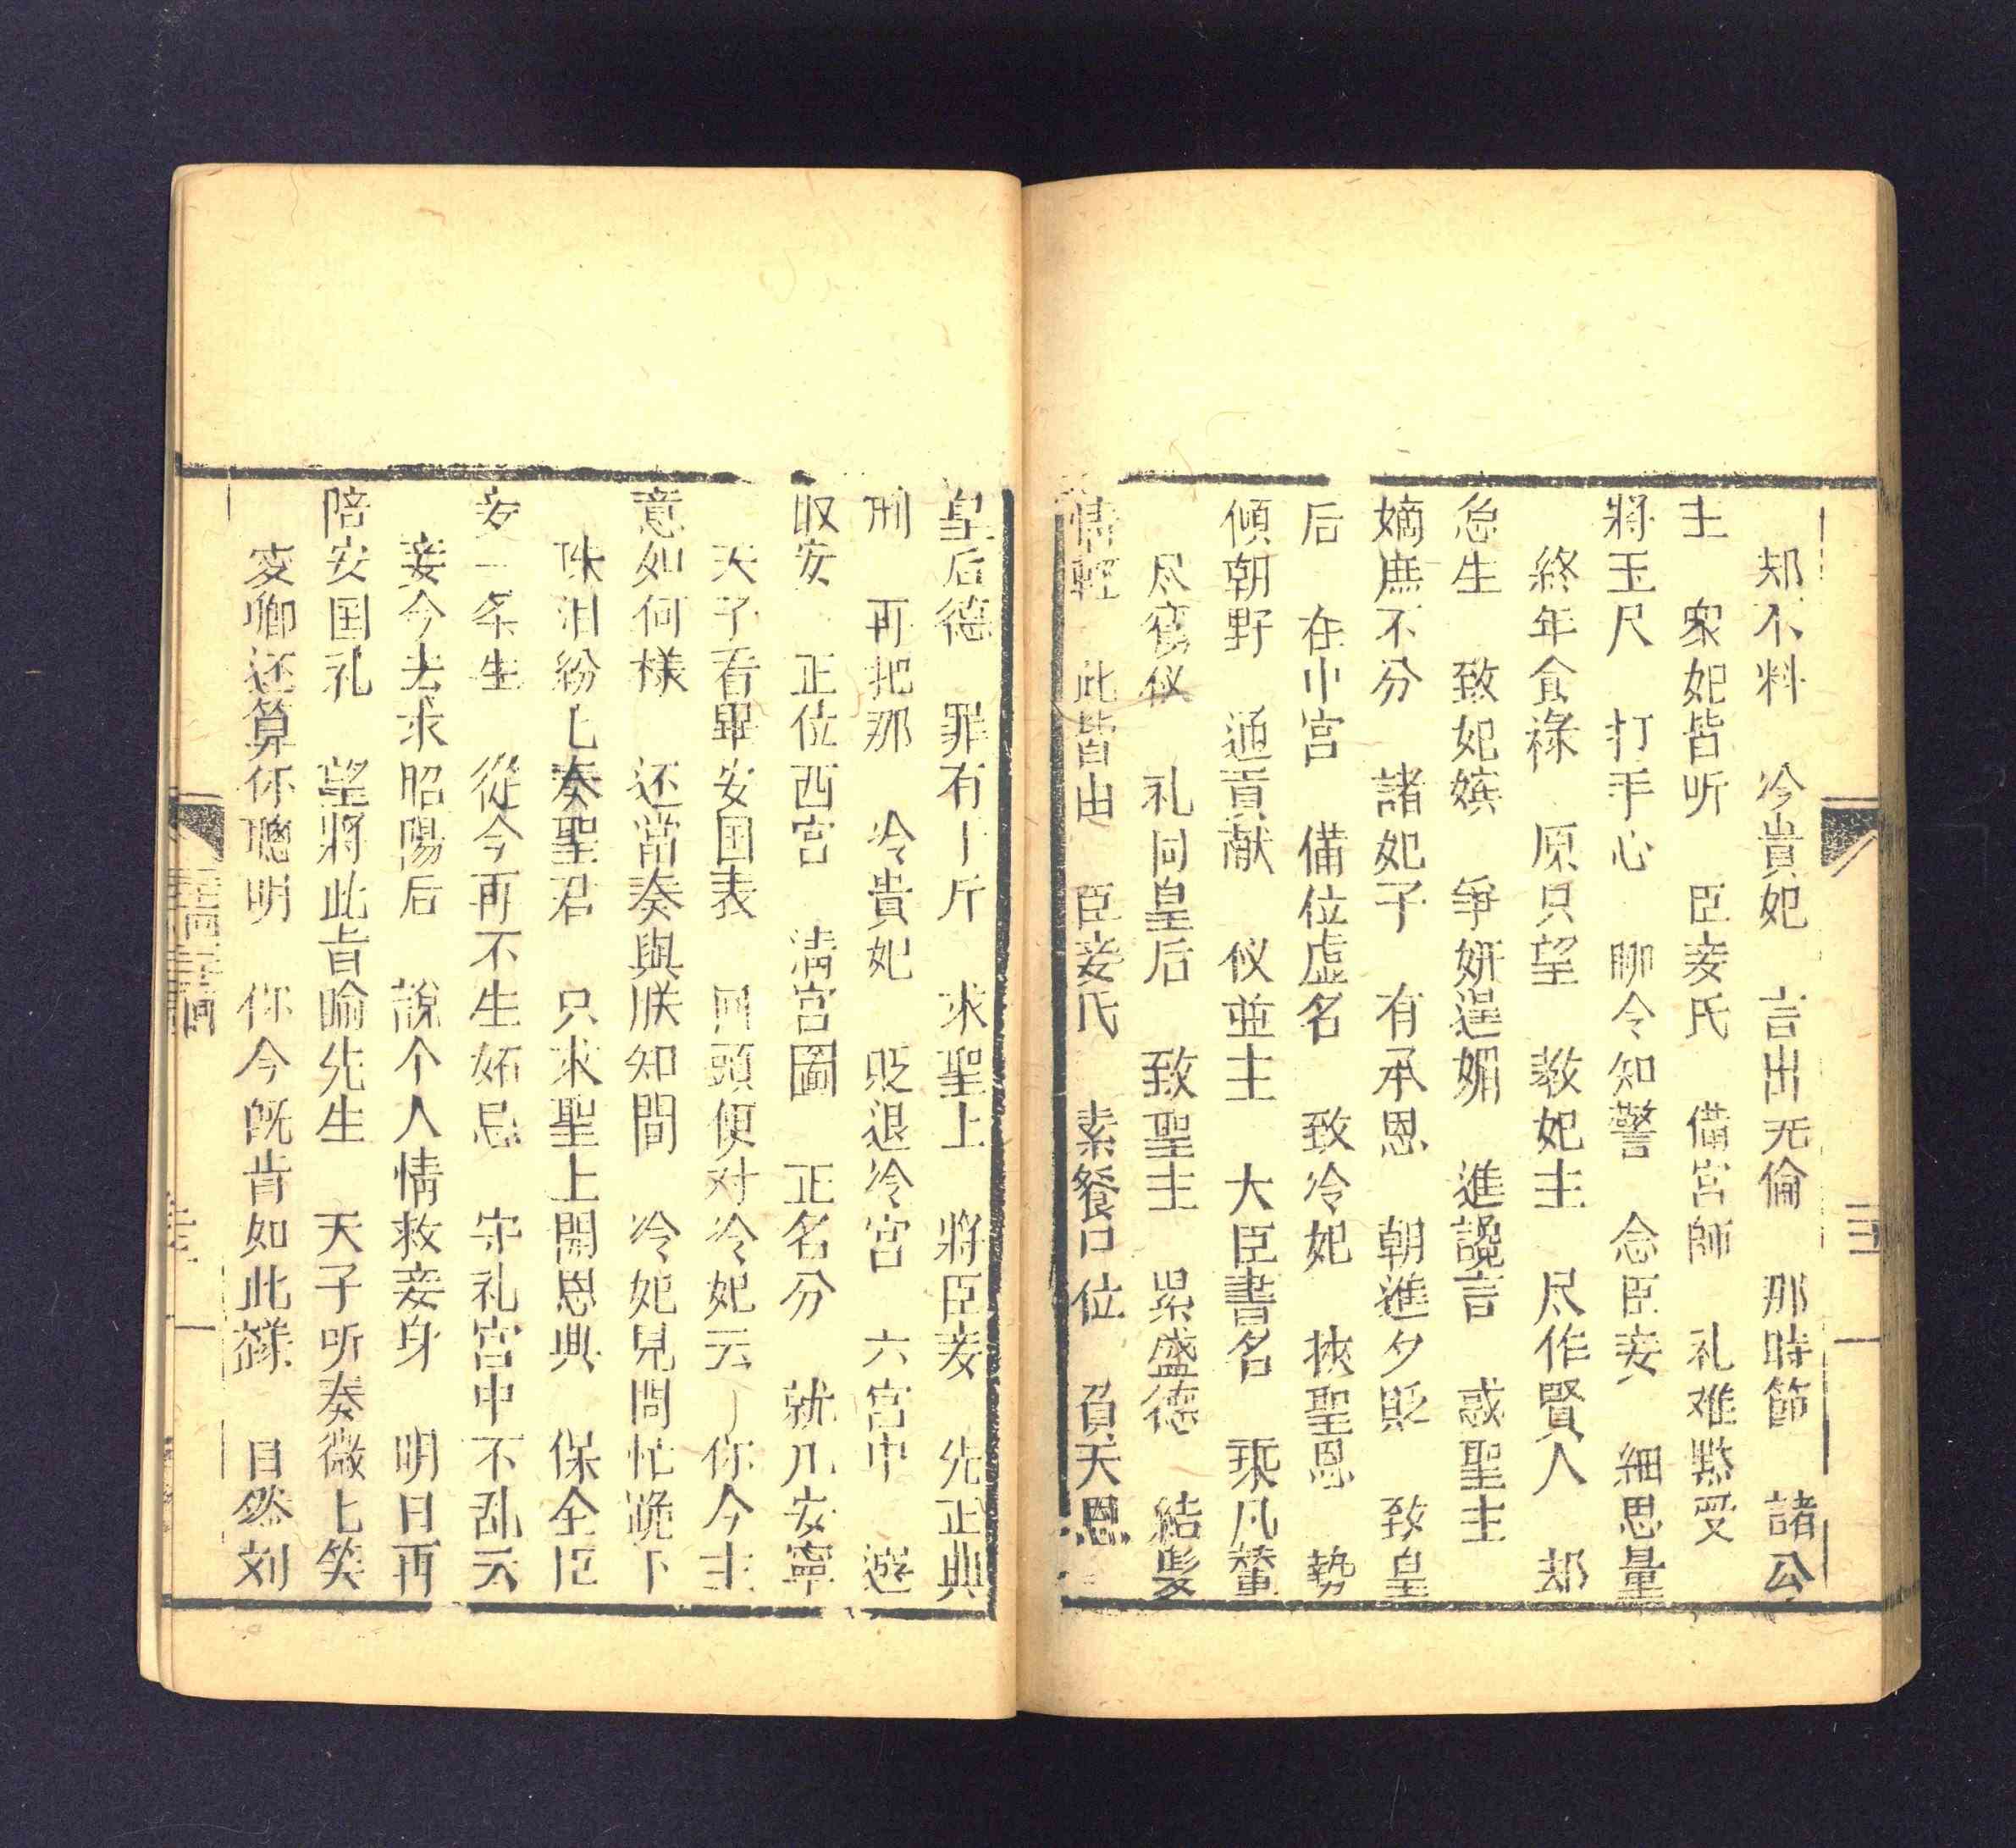 却不料　冷貴妃　言出无倫　那時節　諸公
主　衆妃皆听　臣妾氏　備宮師　礼难黙受
將玉尺　打手心　聊令知警　念臣妾　細思量
終年食祿　原只望　教妃主　尽作賢人　却
怠生　致妃嫔　爭妍逞媚　進讒言　惑聖主
嫡庶不分　諸妃子　有承恩　朝進夕貶　致皇
后　在中宮　備位虚名　致冷妃　挾聖恩　势
傾朝野　通貢献　仪並主　大臣書名　乘凡輦
尽鸞仪　礼同皇后　致聖主　累盛德　結髮
情輕　此皆由　臣妾氏　素餐口位　負天恩
皇后德　罪有丨斤　求聖上　將臣妾　先正典
刑　再把那　冷貴妃　贬退冷宮　六宮中　遊
取安　正位西宮　清宮圖　正名分　就几安寧
天子看畢安国表　回頭便对冷妃云　你今主
意如何様　还當奏與朕知聞　冷妃見問忙跪下
珠泪紛匕奏聖君　只求聖上開恩典　保全臣
妾一条生　從今再不生妬忌　守礼宮中不乱云
妾今去求昭陽后　說个人情救妾身　明日再
陪安国礼　望將此旨喻先生　天子听奏微匕笑
变卿还算你聰明　你今既肯如此様　自然刘